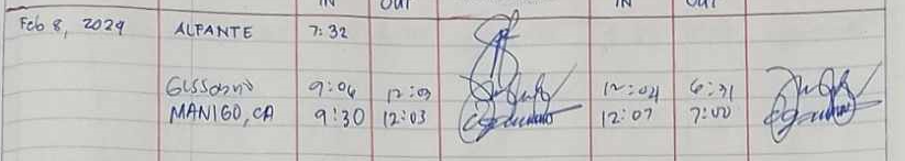 IN OUT IN OUT
Feb 8, 2024 ALPANTE 7:32
9:04 12:03 12:04 6:31
MANIGO, CA 9:30 12:03 12:07 7:00